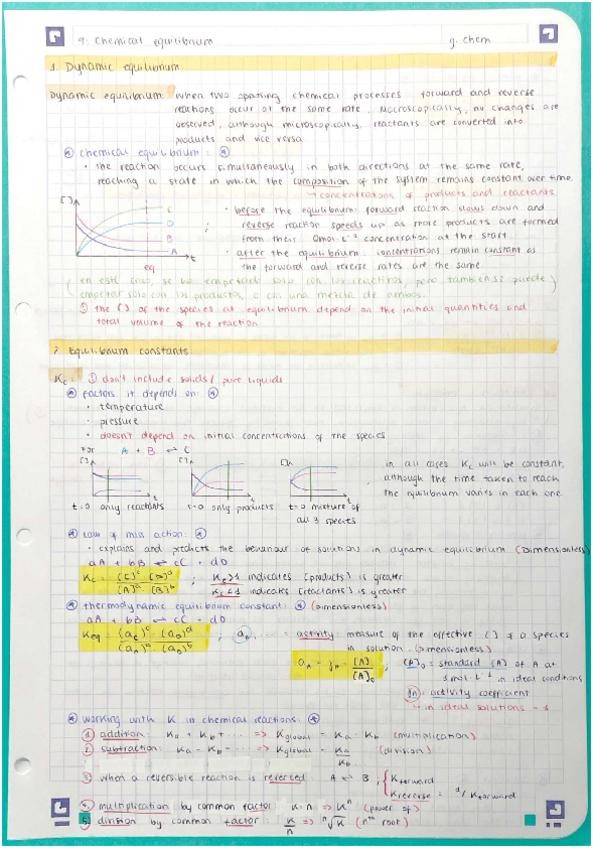 9. Chemical equilibrium
g. chem
1. Dynamic equilibrium
Dynamic equilibrium: when two opposing chemical processes forward and reverse
reactions occur at the same rate. Macroscopically, no changes are
observed, although microscopically, reactants are converted into
products and vice versa
chemical equilibrium:
• the reaction occurs simultaneously in both directions at the same rate,
reaching a state in which the composition of the system remains constant over time.
→ concentrations of products and reactants
[ ]
C
D
B
A
t
eq
• before the equilibrium: forward reaction slows down and
reverse reaction speeds up as more products are formed
from their 0mol·L⁻¹ concentration at the start
• after the equilibrium: concentrations remain constant as
the forward and reverse rates are the same
(en este caso, se ha empezado solo con los reactivos, pero también se puede)
empezar solo con los productos, o con una mezcla de ambos.
! the [ ] of the species at equilibrium depend on the initial quantities and
total volume of the reaction
2. Equilibrium constants:
Kc: ! don't include solids / pure liquids
factors it depends on:
• temperature
• pressure
• doesn't depend on initial concentrations of the species
For A + B ⇌ C
[ ]
[ ]
[ ]
t
t
t
t=0 only reactants
t=0 only products
t=0 mixture of
all 3 species
in all cases Kc will be constant,
although the time taken to reach
the equilibrium varies in each one.
law of mass action:
• explains and predicts the behaviour of solutions in dynamic equilibrium (Dimensionless)
aA + bB ⇌ cC + dD
Kc = [C]ᶜ · [D]ᵈ / [A]ᵃ · [B]ᵇ ; Kc>1 indicates [products] is greater
Kc<1 indicates [reactants] is greater
thermodynamic equilibrium constant: (Dimensionless)
aA + bB ⇌ cC + dD
Keq = (aC)ᶜ · (aD)ᵈ / (aA)ᵃ · (aB)ᵇ ; activity: measure of the effective [ ] of a species
in solution. (Dimensionless)
aA = γA · [A] / [A]₀ ; [A]₀ = standard [A] of A at
1 mol·L⁻¹ in ideal conditions
activity coefficient
→ in ideal solutions = 1
working with K in chemical reactions:
1 addition: Ka + Kb + ... => Kglobal = Ka · Kb (multiplication)
2 subtraction: Ka - Kb - ... => Kglobal = Ka / Kb (division)
3 when a reversible reaction is reversed: A ⇌ B, { Kforward
Kreverse = 1/Kforward
4. multiplication by common factor: K·n => Kⁿ (power of)
5. division by common factor: K/n => ⁿ√K (nᵗʰ root)